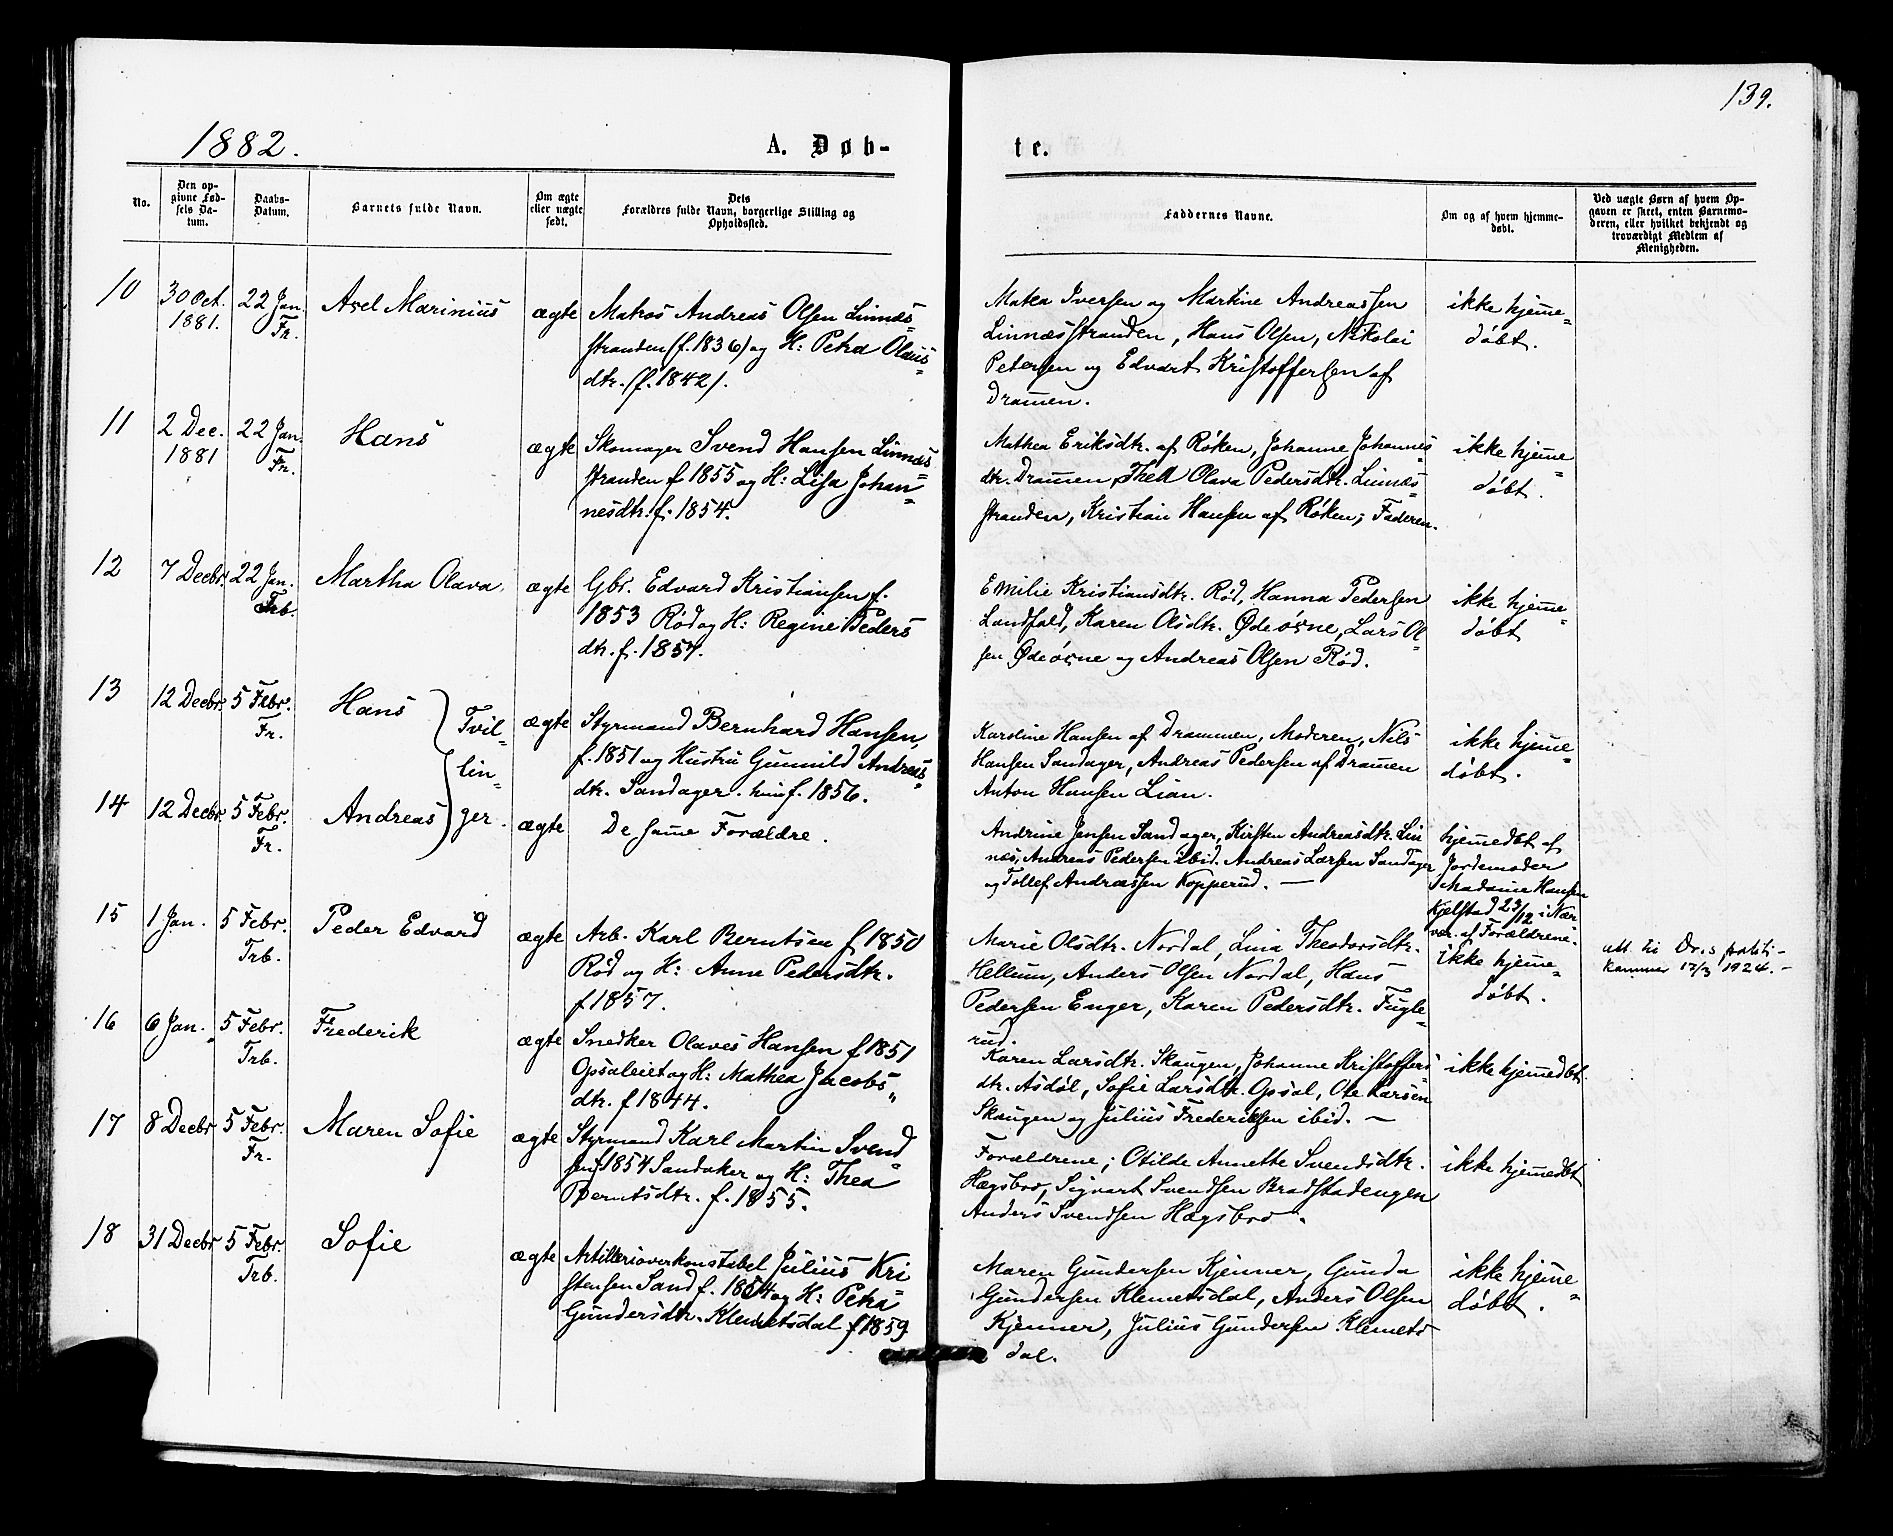 139.
1882.
A. Døb-
te.
No.
Den op-
givne Fød-
sels Da-
tum.
Daabs-
Datum.
Barnets fulde Navn.
Om ægte
eller uægte
født.
Dets
Forældres fulde Navn, borgerlige Stilling og
Opholdssted.
Faddernes Navne.
Om og af hvem hjemme-
døbt.
Ved uægte Børn af hvem Op-
gaven er skeet, enten Barnemo-
deren, eller hvilket bekjendt og
troværdigt Medlem af
Menigheden.
10
30 Oct.
1881.
22 Jan.
Fr.
Axel Marinius
ægte
Matros Andreas Olsen Linnæs-
stranden (f. 1836) og H: Petra Olaus-
dtr. (f. 1842).
Mathea Iversen og Martine Andreassen
Linnæsstranden, Hans Olsen, Nikolai
Petersen og Edvart Kristoffersen af
Dramen.
ikke hjeme-
døbt.
11
2 Dec.
1881
22 Jan.
Fr.
Hans
ægte
Skomager Svend Hansen Linnæs-
stranden f 1855 og H: Lisa Johan-
nesdtr. f. 1854.
Mathea Eriksdtr. af Røken, Johanne Johannes-
dtr. Dramen, Thea Olava Pedersdtr. Linnæs-
stranden, Kristian Hansen af Røken; Faderen.
ikke hjeme-
døbt.
12
7 Decbr.
22 Jan.
Trb.
Martha Olava.
ægte
Gbr. Edvard Kristiansen f.
1853 Rød og H: Regine Peders
dtr. f. 1857.
Emilie Kristiansdtr. Rød, Hanna Pedersen
Landfald, Karen Olsdtr. Ødeørne, Lars Ol-
sen Ødeørne og Andreas Olsen Rød.
ikke hjeme-
døbt
13
12 Decbr.
5 Febr.
Fr.
Hans
Tvil-
lin-
ger.
ægte
Styrmand Bernhard Hansen,
f. 1851 og Hustru Gunnild Andreas-
dtr. Sandager. hun f. 1856.
Karoline Hansen af Drammen, Moderen, Nils
Hansen Sandager, Andreas Pedersen af Dramen
Anton Hansen Lian.
ikke hjeme-
døbt.
14
12 Decbr.
5 Febr.
Fr.
Andreas
ægte
De same Forældre.
Andrine Jensen Sandager, Kirsten Andreasdtr. Lin-
næs, Andreas Pedersen ibid. Andreas Larsen Sandager
og Tollef Andreassen Kopperud. —
hjemedbt af
Jordemoder
Madame Hansen
Kjelstad 23/12 i Nær-
vær. af Forældrene.
15
1 Jan.
5 Febr.
Trb.
Peder Edvard
ægte
Arb. Karl Berntsen f 1850
Rød og H: Anne Pedersdtr.
f 1857.
Marie Olsdtr. Nordal, Lina Theodorsdtr.
Hellum, Anders Olsen Nordal, Hans
Pedersen Enger, Karen Pedersdtr. Fugle-
rud.
ikke hjeme-
døbt.
att. til Dr.s politi-
kammer 17/3 1924. —
16
6 Jan.
5 Febr.
Trb.
Frederik
ægte
Snedker Olaves Hansen f 1851
Opsaleiet og H: Mathea Jacobs-
dtr. f 1844.
Karen Larsdtr. Skaugen, Johanne Kristoffers-
dtr. Asdøl, Sofie Larsdtr. Opsal, Ole Larsen
Skaugen og Julius Frederiksen ibid. —
ikke hjemedbt.
17
8 Decbr
5 Febr.
Fr.
Maren Sofie
ægte
Styrmand Karl Martin Svend-
sen f 1854 Sandaker og H: Thea
Berntsdtr. f. 1855.
Forældrene; Otilde Annette Svendsdtr.
Hægsbro, Sigvart Svendsen Bradstadengen
Anders Svendsen Hægsbro.
ikke hjemedbt
18
31 Decbr
5 Febr.
Trb.
Sofie
ægte
Artillerioverkonstabel Julius Kri-
stensen Sand f. 1854 og H: Petra
Gundersdtr. Klemetsdal f 1859
Maren Gundersen Kjenner, Gunda
Gundersen Klemetsdal, Anders Olsen
Kjenner, Julius Gundersen Klemets-
dal.
ikke hjeme-
døbt.